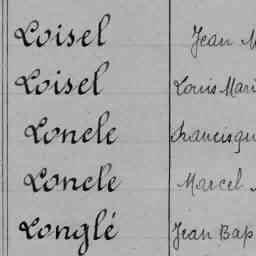 Loisel Jean M
Loisel Louis Mari
Loncle Francisqu
Loncle Marcel
Longlé Jean Bap